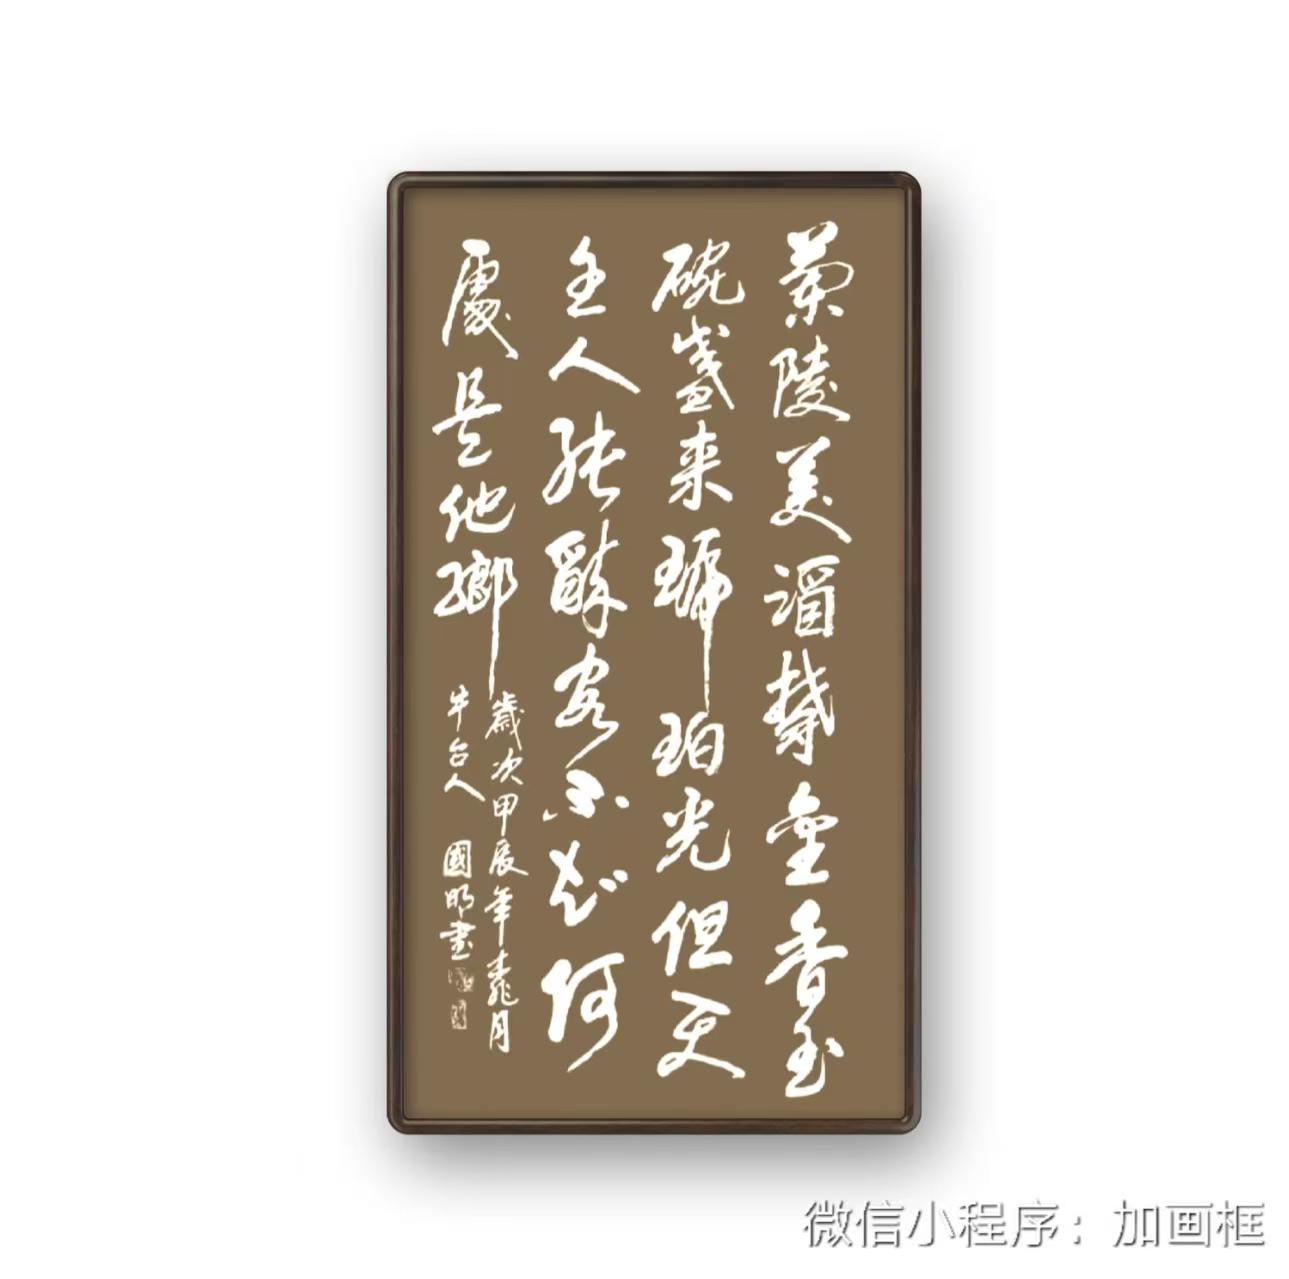 蘭陵美酒鬱金香玉
碗盛来琥珀光但使
主人能醉客不知何
處是他鄉
歲次甲辰年桃月
牛台人國明書
微信小程序：加画框